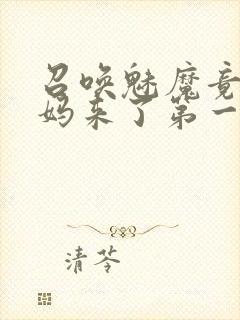 召唤魅魔竟
妈来了第一
清苓